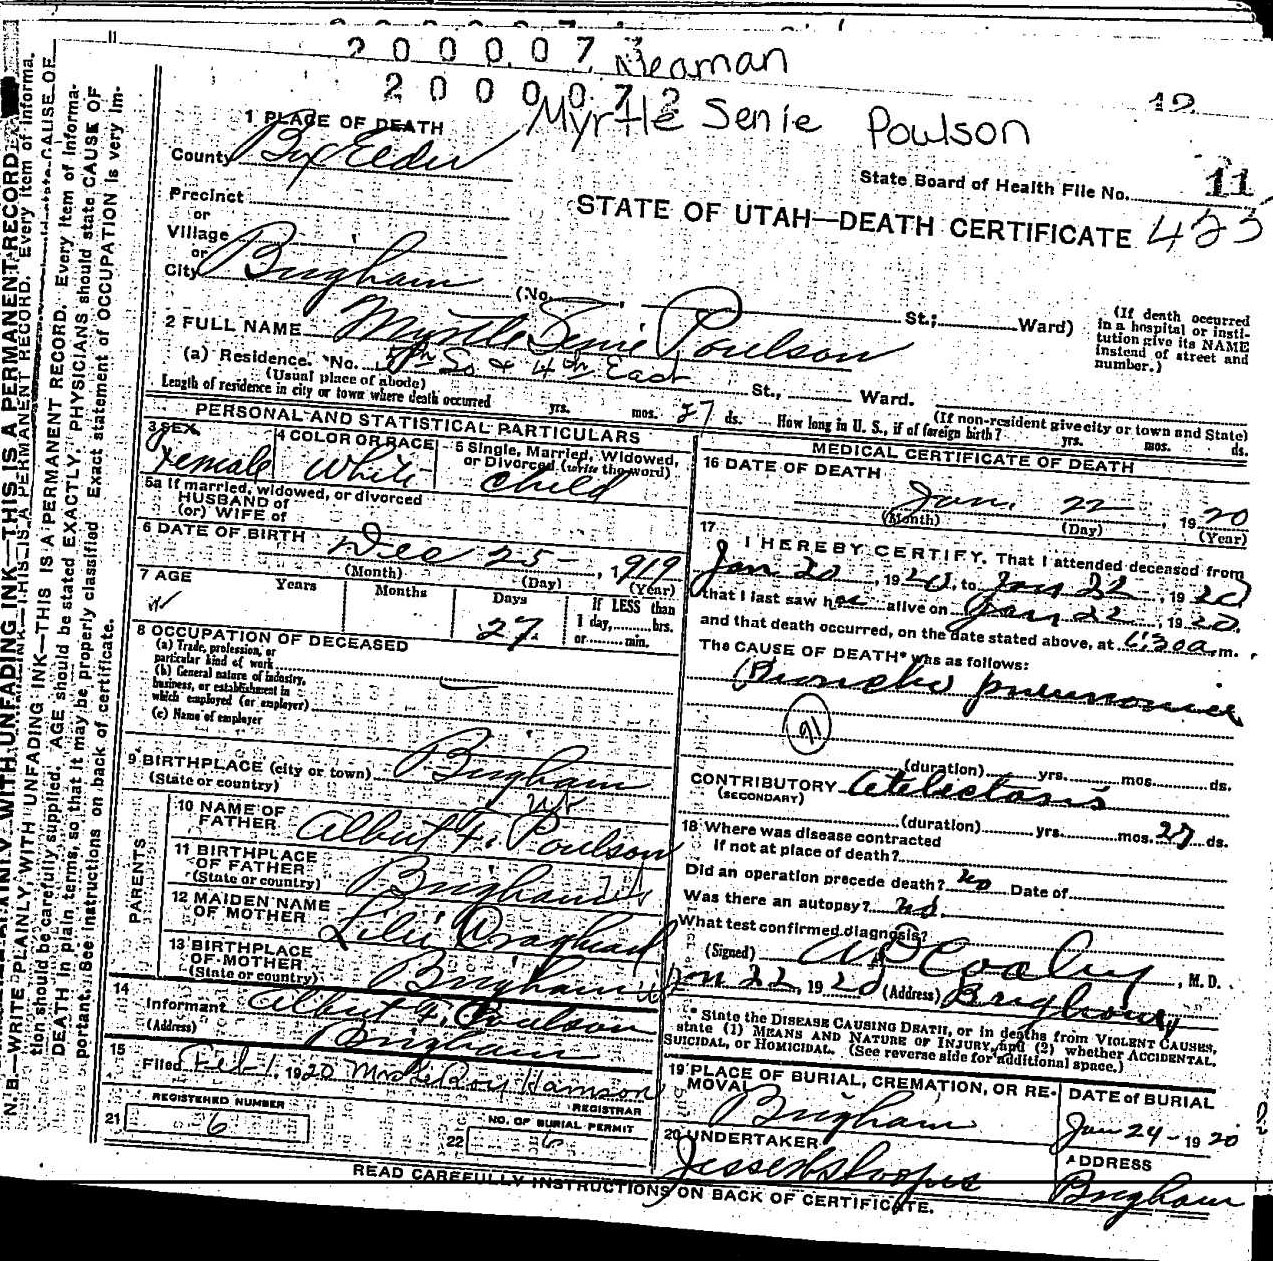 2 0 0 0 0 7
2 0 0 0 0 7 2
Neaman
Myrtle Senie Poulson
12
1 PLACE OF DEATH
County Box Elder
State Board of Health File No. 11
Precinct
or
Village
or
City Brigham
STATE OF UTAH—DEATH CERTIFICATE 423
(No. St.; Ward)
(If death occurred
in a hospital or insti-
tution give its NAME
instead of street and
number.)
2 FULL NAME Myrtle Senie Poulson
(a) Residence. No. 5th So & 4th East St., Ward.
(Usual place of abode)
(If non-resident give city or town and State)
Length of residence in city or town where death occurred yrs. mos. 27 ds. How long in U. S., if of foreign birth? yrs. mos. ds.
PERSONAL AND STATISTICAL PARTICULARS
3 SEX
Female
4 COLOR OR RACE
White
5 Single, Married, Widowed,
or Divorced (write the word)
Child
5a If married, widowed, or divorced
HUSBAND of
(or) WIFE of
6 DATE OF BIRTH Dec 25 , 1919
(Month) (Day) (Year)
7 AGE Years Months Days
27
If LESS than
1 day, hrs.
or min.
8 OCCUPATION OF DECEASED
(a) Trade, profession, or
particular kind of work
(b) General nature of industry,
business, or establishment in
which employed (or employer)
(c) Name of employer
9 BIRTHPLACE (city or town) Brigham
(State or country) Ut
PARENTS
10 NAME OF
FATHER Albert F. Poulson
11 BIRTHPLACE
OF FATHER
(State or country) Brigham Ut
12 MAIDEN NAME
OF MOTHER
13 BIRTHPLACE
OF MOTHER
(State or country) Brigham Ut
14
Informant Albert F. Poulson
(Address) Brigham
15
Filed Feb 1, 1920
REGISTRAR
21 REGISTERED NUMBER
6
22 NO. OF BURIAL PERMIT
6
MEDICAL CERTIFICATE OF DEATH
16 DATE OF DEATH
Jan. 22 , 1920
(Month) (Day) (Year)
17
I HEREBY CERTIFY, That I attended deceased from
Jan 20 , 1920, to Jan 22 , 1920
that I last saw her alive on Jan 22 , 1920.
and that death occurred, on the date stated above, at 6:30a m.
The CAUSE OF DEATH* was as follows:
Broncho pneumonia
91
(duration) yrs. mos. ds.
CONTRIBUTORY Atelectasis
(SECONDARY)
(duration) yrs. mos. 27 ds.
18 Where was disease contracted
if not at place of death?
Did an operation precede death? no Date of
Was there an autopsy? no.
What test confirmed diagnosis?
(Signed) Cooley , M. D.
Jan 22, 1920 (Address) Brigham
* State the DISEASE CAUSING DEATH, or in deaths from VIOLENT CAUSES,
state (1) MEANS AND NATURE OF INJURY, and (2) whether ACCIDENTAL,
SUICIDAL, or HOMICIDAL. (See reverse side for additional space.)
19 PLACE OF BURIAL, CREMATION, OR RE-
MOVAL
Brigham
DATE of BURIAL
Jan 24 - 1920
20 UNDERTAKER
ADDRESS
Brigham
READ CAREFULLY INSTRUCTIONS ON BACK OF CERTIFICATE.
N. B.—WRITE PLAINLY, WITH UNFADING INK—THIS IS A PERMANENT RECORD. Every item of informa-
tion should be carefully supplied. AGE should be stated EXACTLY. PHYSICIANS should state CAUSE OF
DEATH in plain terms, so that it may be properly classified. Exact statement of OCCUPATION is very im-
portant. See instructions on back of certificate.